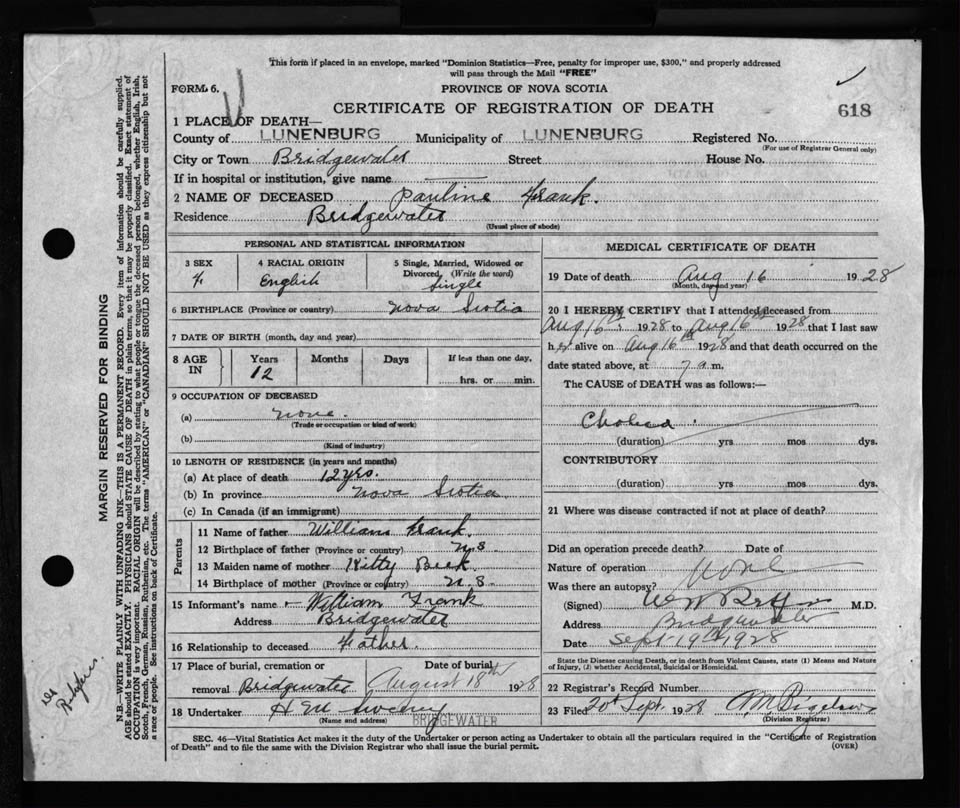 This form if placed in an envelope, marked "Dominion Statistics—Free, penalty for improper use, $300," and properly addressed
will pass through the Mail "FREE"
FORM 6.
PROVINCE OF NOVA SCOTIA
CERTIFICATE OF REGISTRATION OF DEATH
618
1 PLACE OF DEATH—
County of LUNENBURG Municipality of LUNENBURG Registered No.
(For use of Registrar General only)
City or Town Bridgewater Street House No.
If in hospital or institution, give name
2 NAME OF DECEASED Pauline Frank.
Residence Bridgewater
(Usual place of abode)
PERSONAL AND STATISTICAL INFORMATION
3 SEX F.
4 RACIAL ORIGIN English
5 Single, Married, Widowed or
Divorced, (Write the word)
Single
6 BIRTHPLACE (Province or country) Nova Scotia
7 DATE OF BIRTH (month, day and year)
8 AGE IN Years Months Days If less than one day,
12 hrs. or min.
9 OCCUPATION OF DECEASED
(a) None.
(Trade or occupation or kind of work)
(b)
(Kind of industry)
10 LENGTH OF RESIDENCE (in years and months)
(a) At place of death 12 yrs.
(b) In province Nova Scotia
(c) In Canada (if an immigrant)
Parents
11 Name of father William Frank.
12 Birthplace of father (Province or country) N.S.
13 Maiden name of mother Kitty
14 Birthplace of mother (Province or country) N.S
15 Informant's name William Frank
Address Bridgewater
16 Relationship to deceased Father.
17 Place of burial, cremation or Date of burial
removal Bridgewater August 18th 1928
18 Undertaker H M Sweeny
(Name and address) BRIDGEWATER
MEDICAL CERTIFICATE OF DEATH
19 Date of death Aug 16 1928
(Month, day and year)
20 I HEREBY CERTIFY that I attended deceased from
Aug 16th 1928 to Aug 16th 1928 that I last saw
her alive on Aug 16th 1928 and that death occurred on the
date stated above, at 7 a.m.
The CAUSE of DEATH was as follows:—
(duration) yrs mos dys.
CONTRIBUTORY
(duration) yrs mos dys.
21 Where was disease contracted if not at place of death?
Did an operation precede death? Date of
Nature of operation None
Was there an autopsy?
(Signed) M.D.
Address Bridgewater
Date Sept 19th 1928
State the Disease causing Death, or in death from Violent Causes, state (1) Means and Nature
of Injury, (2) whether Accidental, Suicidal or Homicidal.
22 Registrar's Record Number
23 Filed 20th Sept. 1928
(Division Registrar)
SEC. 46—Vital Statistics Act makes it the duty of the Undertaker or person acting as Undertaker to obtain all the particulars required in the "Certificate of Registration
of Death" and to file the same with the Division Registrar who shall issue the burial permit. (OVER)
MARGIN RESERVED FOR BINDING
N.B.—WRITE PLAINLY WITH UNFADING INK—THIS IS A PERMANENT RECORD. Every item of information should be carefully supplied.
AGE should be stated EXACTLY. PHYSICIANS should STATE CAUSE OF DEATH in plain terms, so that it may be properly classified. Exact statement of
OCCUPATION is very important. RACIAL ORIGIN will be described by stating to what people or tongue the deceased person belonged, whether English, Irish,
Scotch, French, German, Russian, Ruthenian, etc. The terms "AMERICAN" or "CANADIAN" SHOULD NOT BE USED as they express citizenship but not
a race of people. See instructions on back of Certificate.